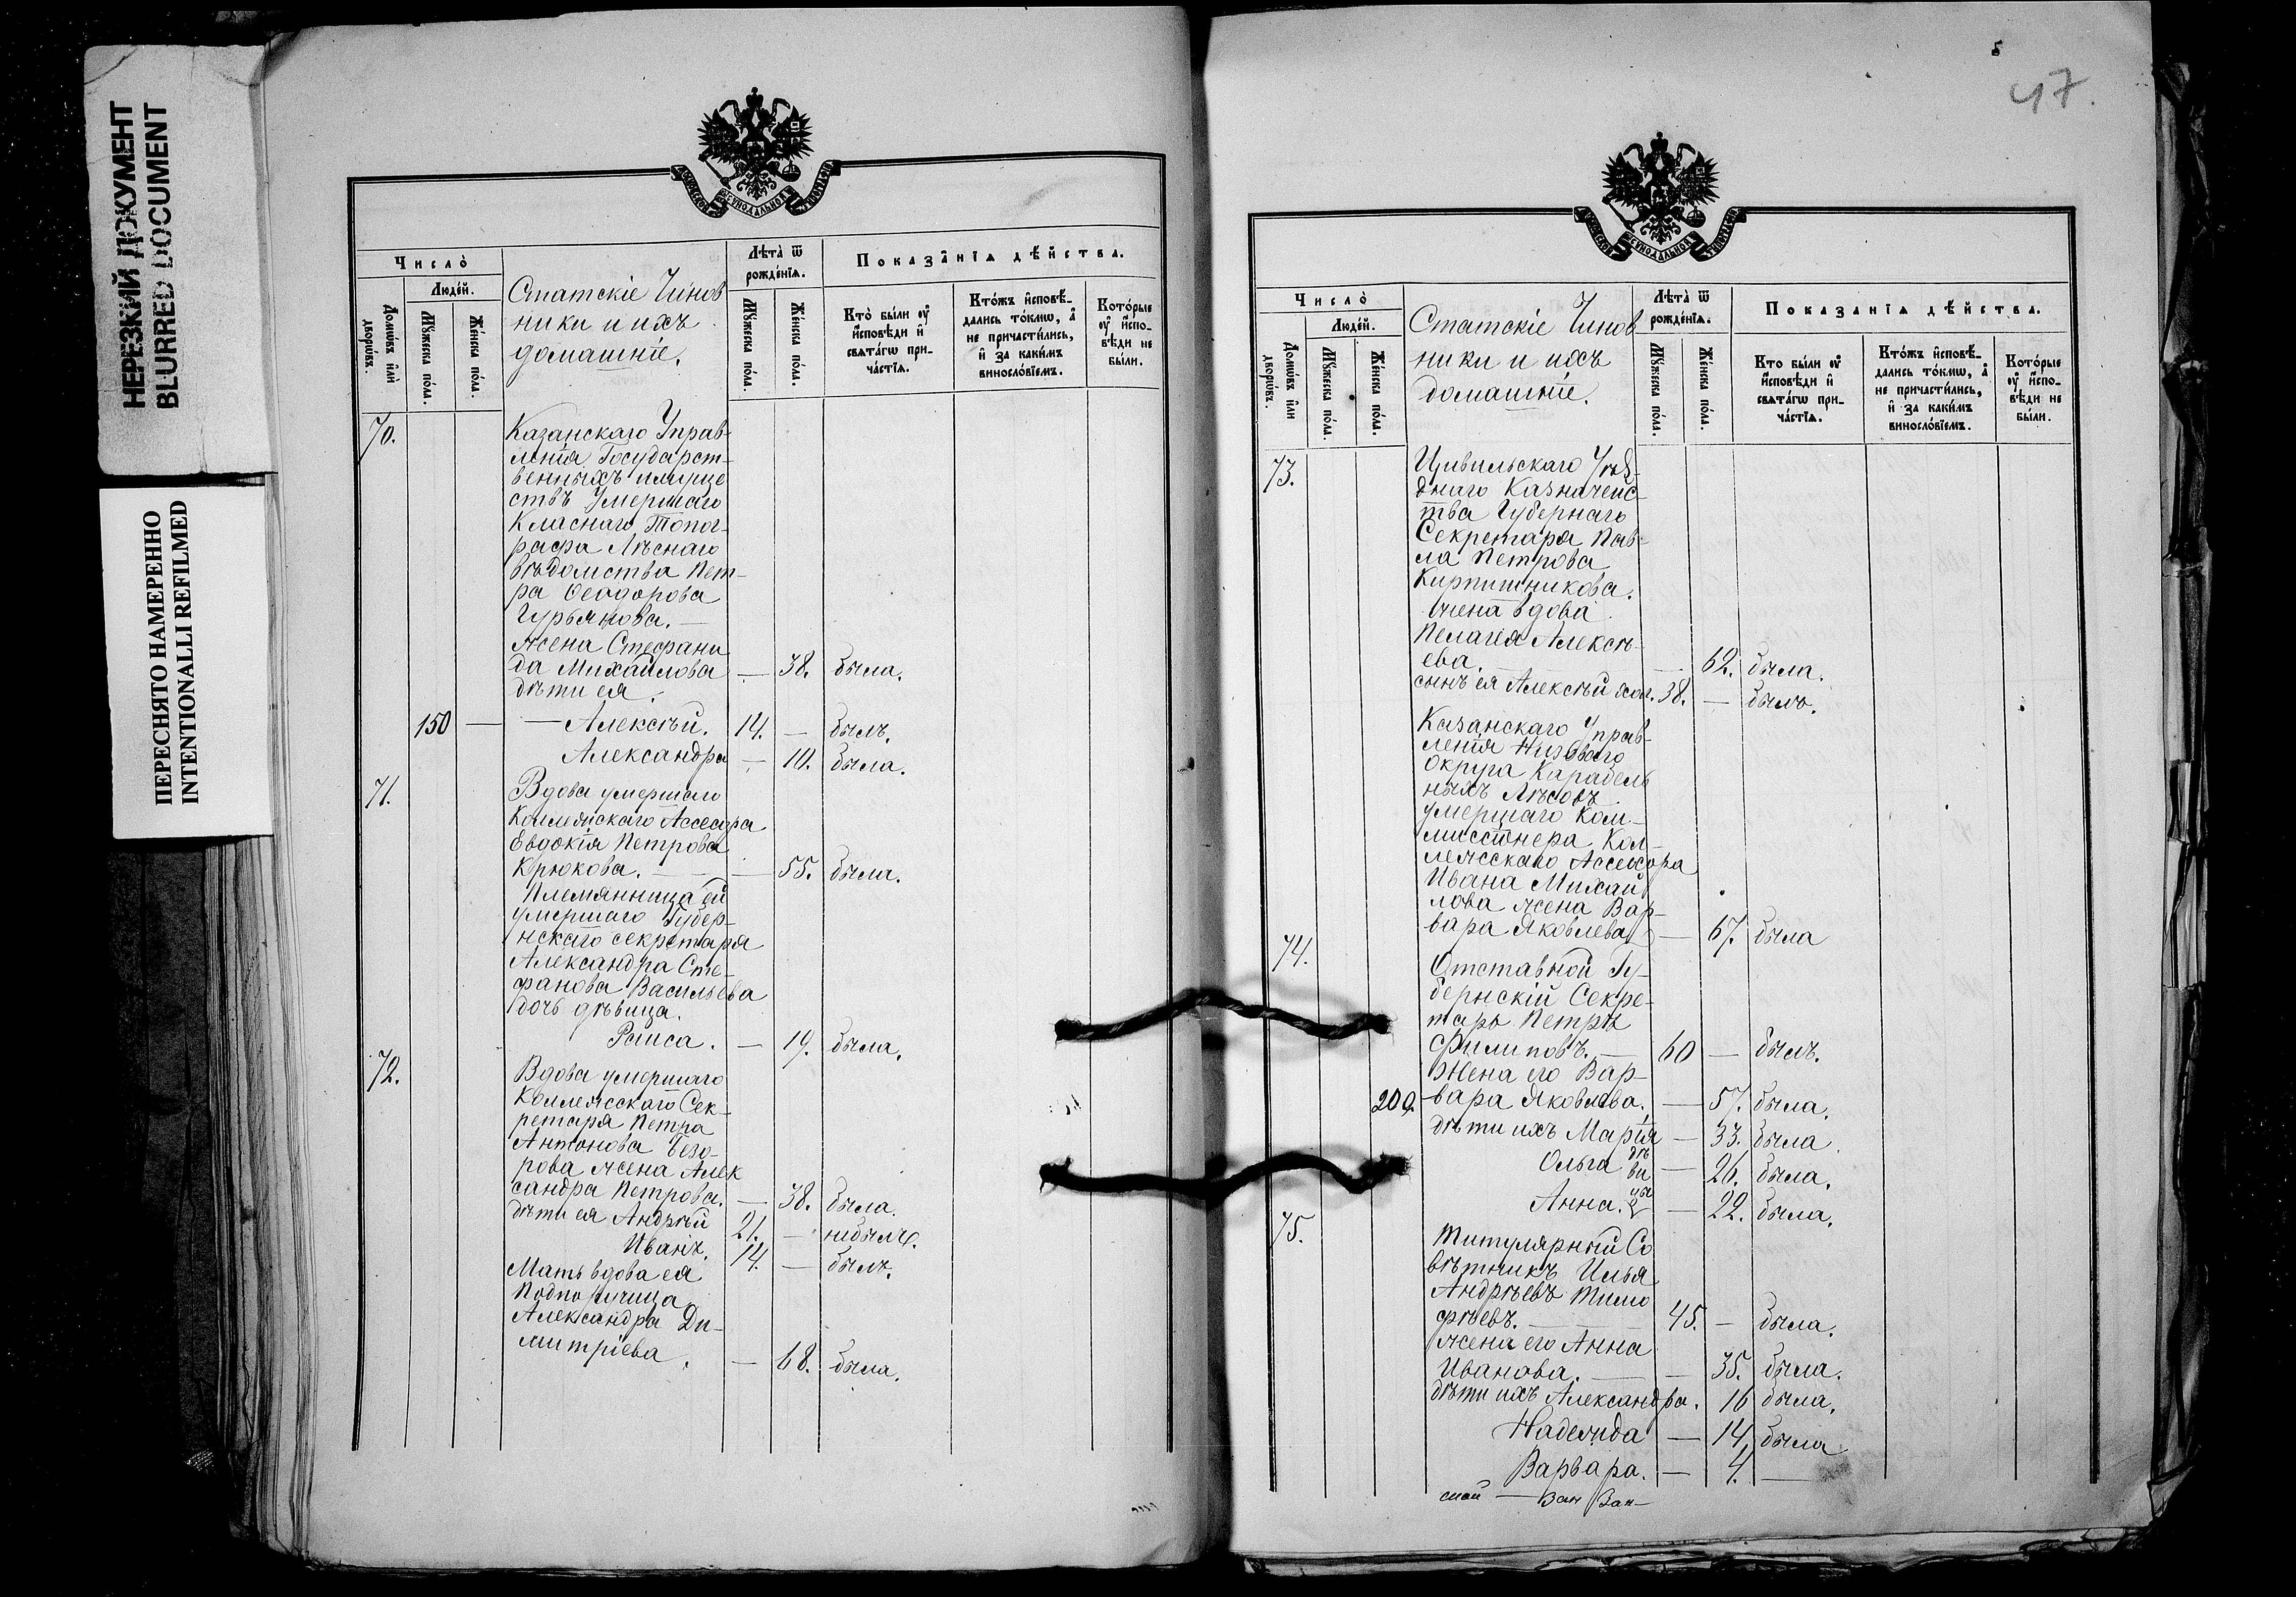 НЕРЕЗКИЙ ДОКУМЕНТ
BLURRED DOCUMENT
ПЕРЕСНЯТО НАМЕРЕННО
INTENTIONALLI REFILMED
Число̀
Людéй.
Домѡ́въ и҆лѝ дворѡ́въ.
Мꙋ́жеска по́ла.
Же́нска по́ла.
Статскіе Чинов
ники и ихъ
домашніе.
Лѣта̀ ѿ
рожде́нїѧ.
Мꙋ́жеска по́ла.
Же́нска по́ла.
Показа̑нїѧ дѣ́йства.
Кто̀ были ᲂу҆
и҆сповѣди и҆
свѧта́гѡ при-
ча́стїѧ.
Кто́жъ и҆сповѣ́-
дались то́кмѡ, а҆
не причасти́лись,
и҆ за каки́мъ
винослóвїемъ.
Кото́рые
ᲂу҆ и҆спо-
вѣди не
были.
70.
Казанскаго Управ-
ленія Государст-
венныхъ имуще
ствъ Умершаго
Класнаго Топог-
рафа Лѣснаго
вѣдомства Пет-
ра Ѳеодорова
Гурьянова. —
Жена Стефани
да Михайлова — 38. была.
дѣти ея.
150 — — Алексѣй. 14. — былъ.
Александра — 10. была.
71.
Вдова умершаго
Коллежскаго Ассесора
Евдокія Петрова
Крюкова. — — 55. была.
Племянница ей
умершаго Губер-
нскаго секретаря
Александра Сте-
фанова Васильева
дочь дѣвица.
Раиса. — 19. была.
72.
Вдова умершаго
Коллежскаго Сек-
ретаря Петра
Антонова
рова жена Алек
сандра Петрова. — 38. была.
дѣти ея Андрѣй 21. — небылъ.
Иванъ. 14. — былъ.
Мать вдова ея
Подпоручица
Александра Ди-
митріева. — 68. была.
47.
Число̀
Людéй.
Домѡ́въ и҆лѝ дворѡ́въ.
Мꙋ́жеска по́ла.
Же́нска по́ла.
Статскіе Чинов
ники и ихъ
домашніе.
Лѣта̀ ѿ
рожде́нїѧ.
Мꙋ́жеска по́ла.
Же́нска по́ла.
Показа̑нїѧ дѣ́йства.
Кто были ᲂу҆
и҆сповѣди и҆
свѧта́гѡ при-
ча́стїѧ.
Кто́жъ и҆сповѣ́-
дались то́кмѡ, а҆
не причасти́лись,
и҆ за каки́мъ
винослóвїемъ.
Кото́рые
ᲂу҆ и҆спо-
вѣди не
были.
73.
Цивильскаго Уѣз-
днаго Казначейс-
тва Губернаго
Секретаря Пав-
ла Петрова
Кирпишникова.
жена вдова
Пелагея Алексѣ-
ева. — 62. была.
сынъ ея Алексѣй хол. 38. — былъ.
Казанскаго Управ-
ленія Низоваго
округа Карабель
ныхъ Лѣсовъ
умершаго Ком-
миссіонера Кол-
лежсскаго Ассесора
Ивана Михай
лова жена Вар-
вара Яковлева — 67. была
74.
Отставной Гу-
бернскій Секре-
тарь Петръ
Филиповъ. — 60 — былъ.
Жена его Вар-
200. вара Яковлева. — 57. была.
дѣти ихъ Марія — 33. была.
Ольга — 26. была.
Анна. — 22. была.
дѣ
ви
цы
75.
Титулярный Со
вѣтникъ Илья
Андрѣевъ Тимо
фѣевъ. — 45. — была.
жена его Анна
Иванова. — — 35. была.
дѣти ихъ Александра. 16 была.
Надежда — 14 была
Варвара. — 4. —